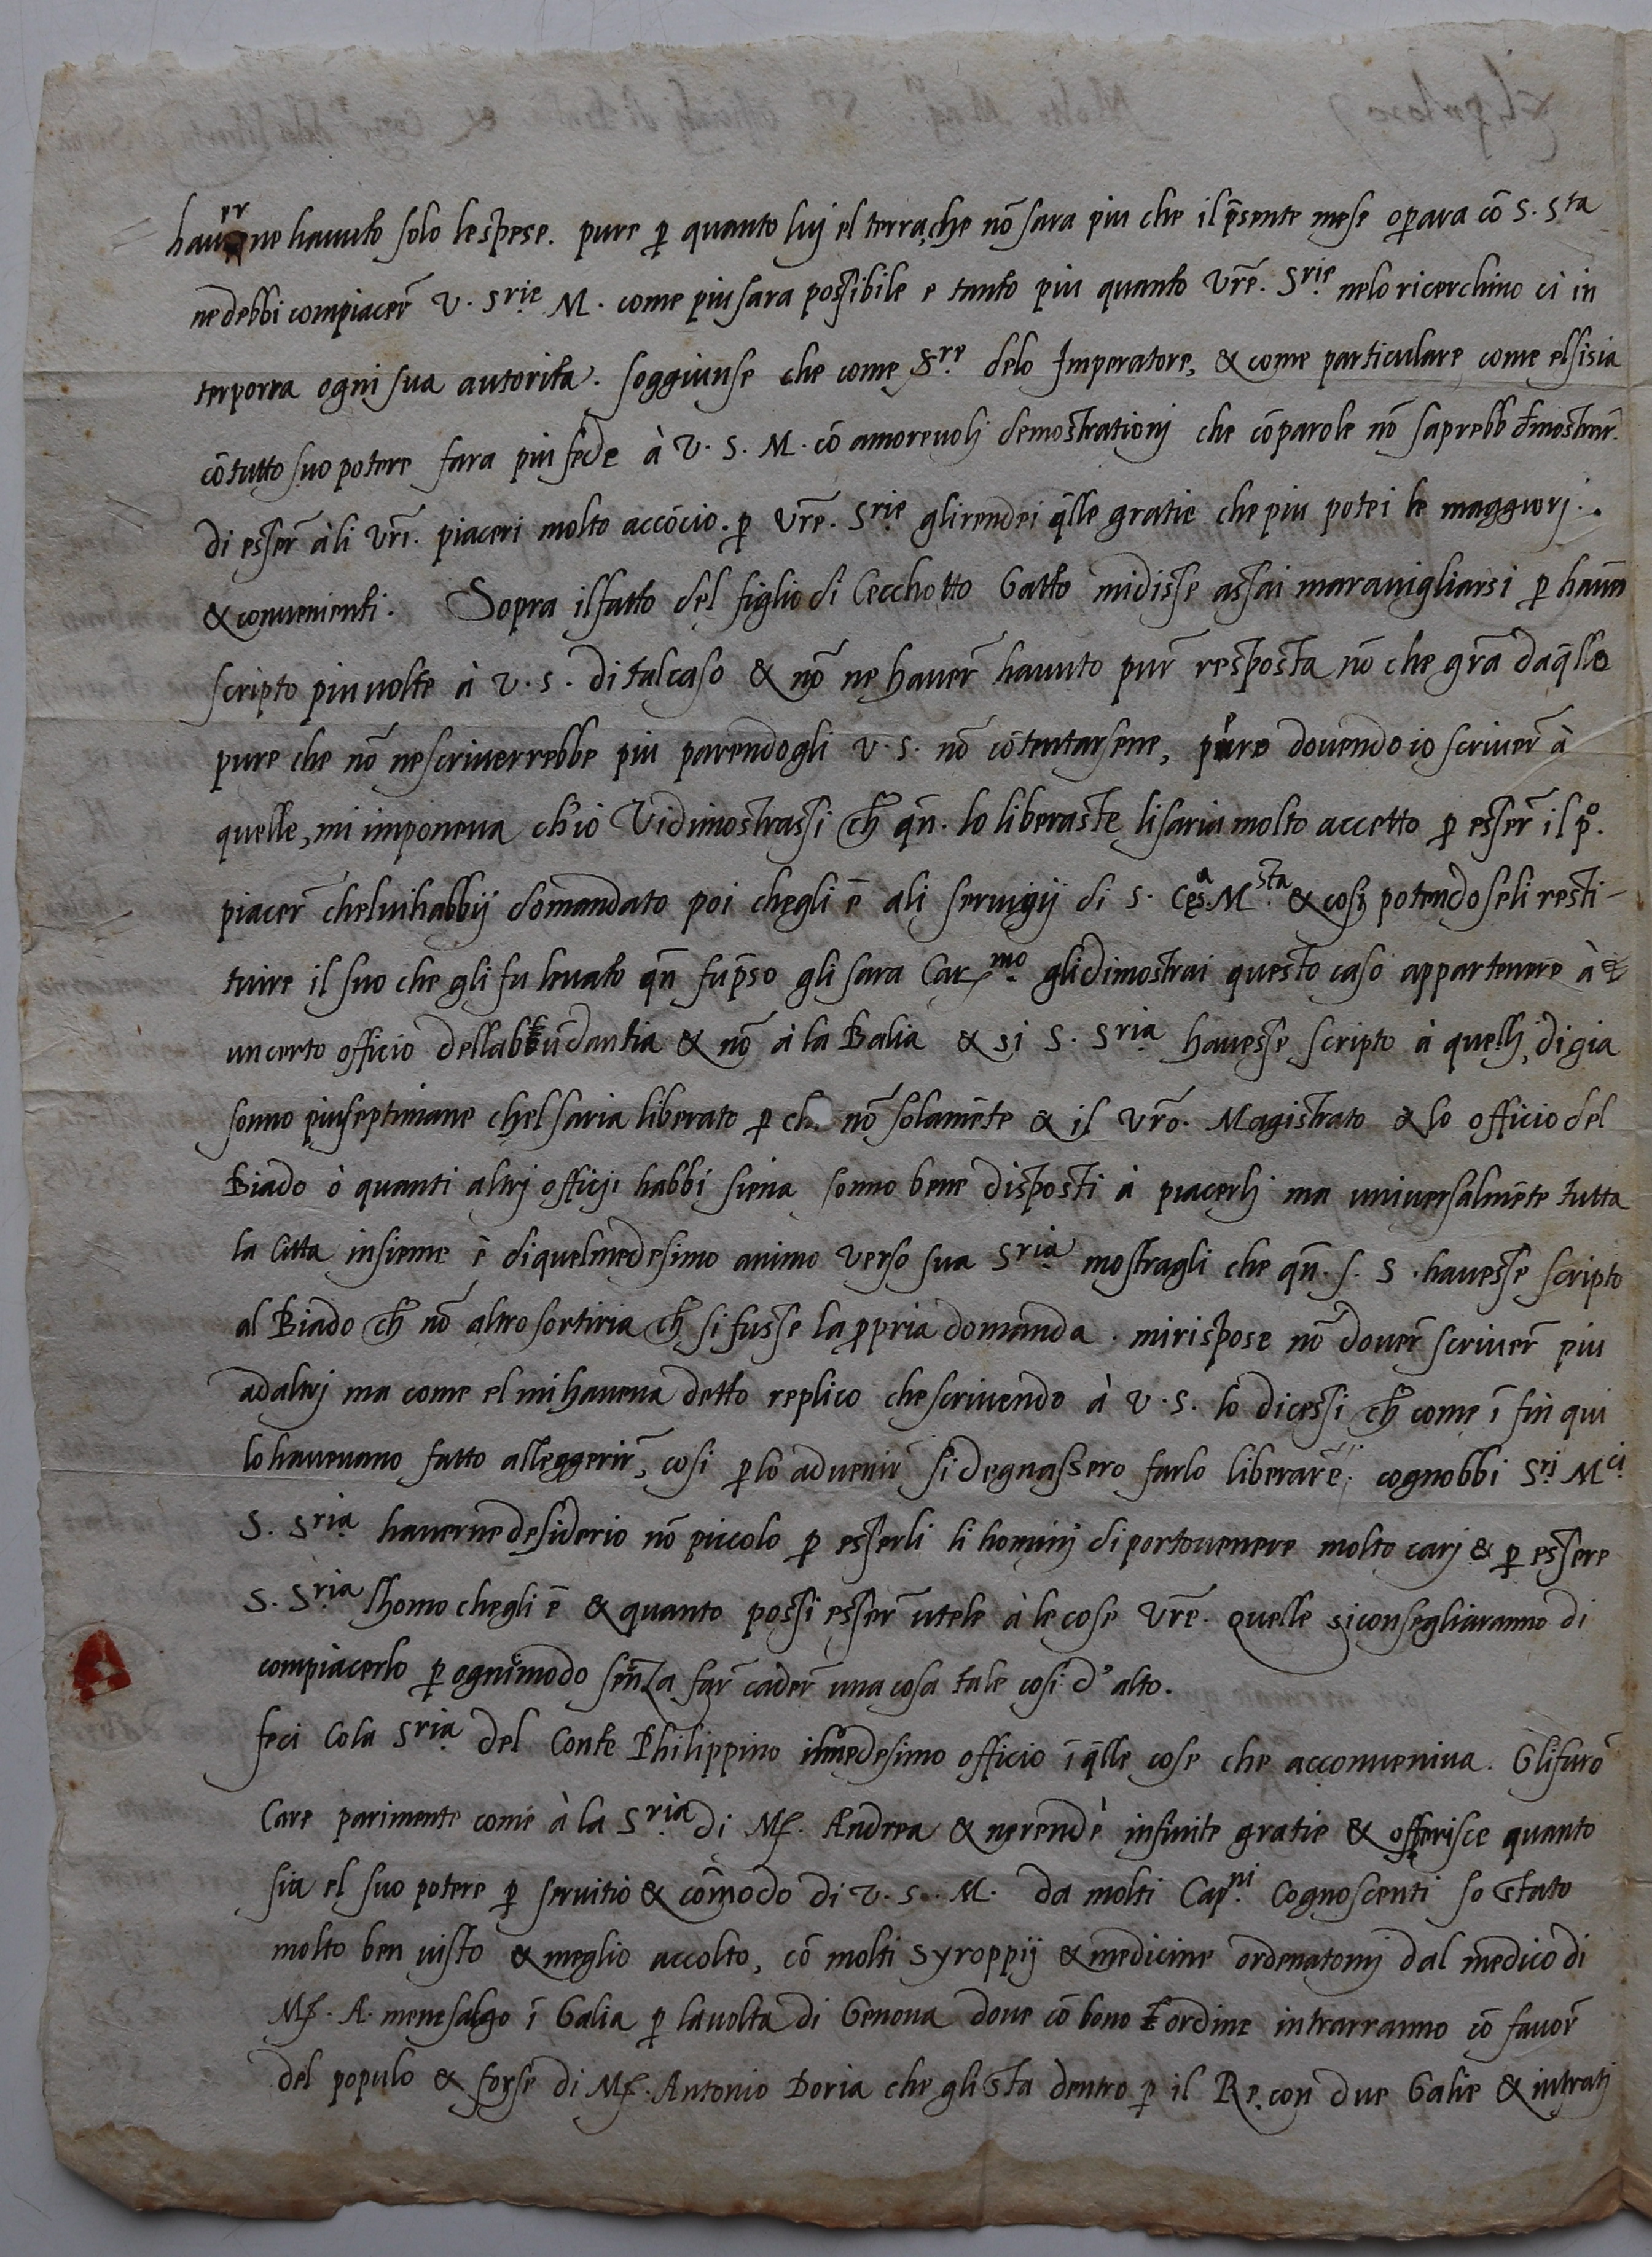 haverne havuto solo lespese. pure p̱ quanto luj el terra, che nō sara piu che il p̄sente mese op̱ara cō S. Sta
nedebbi compiacer̄ V. Srie M. come piu sara possibile e tanto piu quanto Vrē. Srie nelo ricerchino ci in
terporra ogni sua autorita. soggiunse che come Sre delo Imperatore, & come particulare come elsisia
cōtutto suo potere fara piu fede à V. S. M. cō amorevolj demostrationj che cōparole nō saprebb d̄mostrar̄.
di esser̄ àli Vrī. piaceri molto accōcio. p̱ Vrē. Srie glirendei q̄lle gratie che piu potei le maggiorj.
& convenienti. Sopra ilfatto del figlio di Cecchotto Gatto midisse assai maravigliarsi p̱ haver̄
scripto piu volte à V. S. di talcaso & nō ne haver̄ havuto pur̄ resposta nō che grā daq̄llo
pure che nō nescriverrebbe piu parendogli V. S. nō cōtentarsene, pure dovendo io scriver̄ à
quelle, mi imponeva ch'io Vidimostrassi ch̄ qn̄. lo liberaste lisaria molto accetto p̱ esser̄ il po.
piacer̄ chelui habbij domandato poi chegli ē ali servigij di S. Cesa. Msta. & cosi potendoseli resti-
tuire il suo che gli fu levato qn̄ fup̄so gli sara Carmo. glidimostrai questo caso appartenere à
uncerto officio dellabbūdantia & nō à la Balia & si S. Sria havesse scripto à quellj, digia
sonno piu septimane chel saria liberato p̱ ch. nō solamēte & il Vrō. Magistrato & lo officio del
Biado ò quanti altrj officij habbi siena sonno bene disposti à piacerlj ma universalmēte tutta
la Citta insieme è diquelmedesimo animo Verso sua Sria mostragli che qn̄. S. S. havesse scripto
al Biado ch̄ nō altro sortiria ch̄ si fusse la p̱pria domanda. mirispose nō dover̄ scriver̄ piu
adaltrj ma come el mi haveva detto replico che scrivendo à V. S. lo dicessi ch̄ come ī fin qui
lo havevano fatto alleggerir̄, cosi p̱lo advenir̄ si degnassero farlo liberare. cognobbi Srj Mci
S. Sria haverne desiderio nō piccolo p̱ esserli li hominj di portovenere molto carj & p̱ essere
S. Sria lhomo chegli ē & quanto possi esser̄ utele à le cose Vrē. quelle siconsegliaranno di
compiacerlo p̱ ognimodo senza far̄ cader̄ una cosa tale cosi d'alto.
feci Cola Sria del Conte Philippino ilmedesimo officio ī q̄lle cose che acconveniva. Glifurō
Care parimente come à la Sria di Mſ. Andrea & nerendè infinite gratie & offerisce quanto
sia el suo potere p̱ servitio & cōmodo di V. S. M. da molti Capni. Cognoscenti so stato
molto ben visto & meglio accolto, cō molti syroppij & medicine ordenatomj dal medico di
Mſ. A. menesalgo ī Galia p̱ lavolta di Genova dove cō bono ordine intrarranno cō favor̄
del populo & forse di Mſ. Antonio Doria che gli sta dentro p̱ il Re. con due Galie & intratj